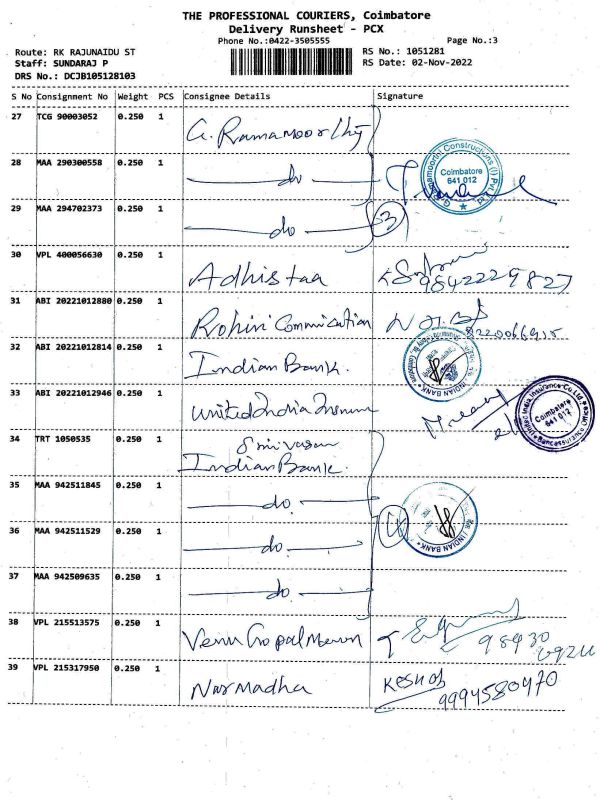 THE PROFESSIONAL COURIERS, Coimbatore
Delivery Runsheet - PCX
Phone No.:0422-3505555 Page No.:3
Route: RK RAJUNAIDU ST RS No.: 1051281
Staff: SUNDARAJ P RS Date: 02-Nov-2022
DRS No.: DCJB105128103
S No Consignment No Weight PCS Consignee Details Signature
27 TCG 90003052 0.250 1 G. Ramamoorthy
28 MAA 290300558 0.250 1 do
G. Ramamoorthi Constructions (I) Pvt. Ltd. Coimbatore 641 012
29 MAA 294702373 0.250 1 do 3
30 VPL 400056630 0.250 1 Adhistaa 9842229827
31 ABI 20221012880 0.250 1 Rohini Commnication 8220066915
32 ABI 20221012814 0.250 1 Indian Bank. INDIAN BANK
33 ABI 20221012946 0.250 1 United India Insurance
United India Insurance Co. Ltd. Coimbatore 641 012 Bancassurance Office
34 TRT 1050535 0.250 1 Srinivasan
Indian Bank.
35 MAA 942511845 0.250 1 do.
36 MAA 942511529 0.250 1 do. INDIAN BANK
37 MAA 942509635 0.250 1 do.
38 VPL 215513575 0.250 1 Venu Gopal Menon 98430
39 VPL 215317950 0.250 1 Narmadha 9994580470